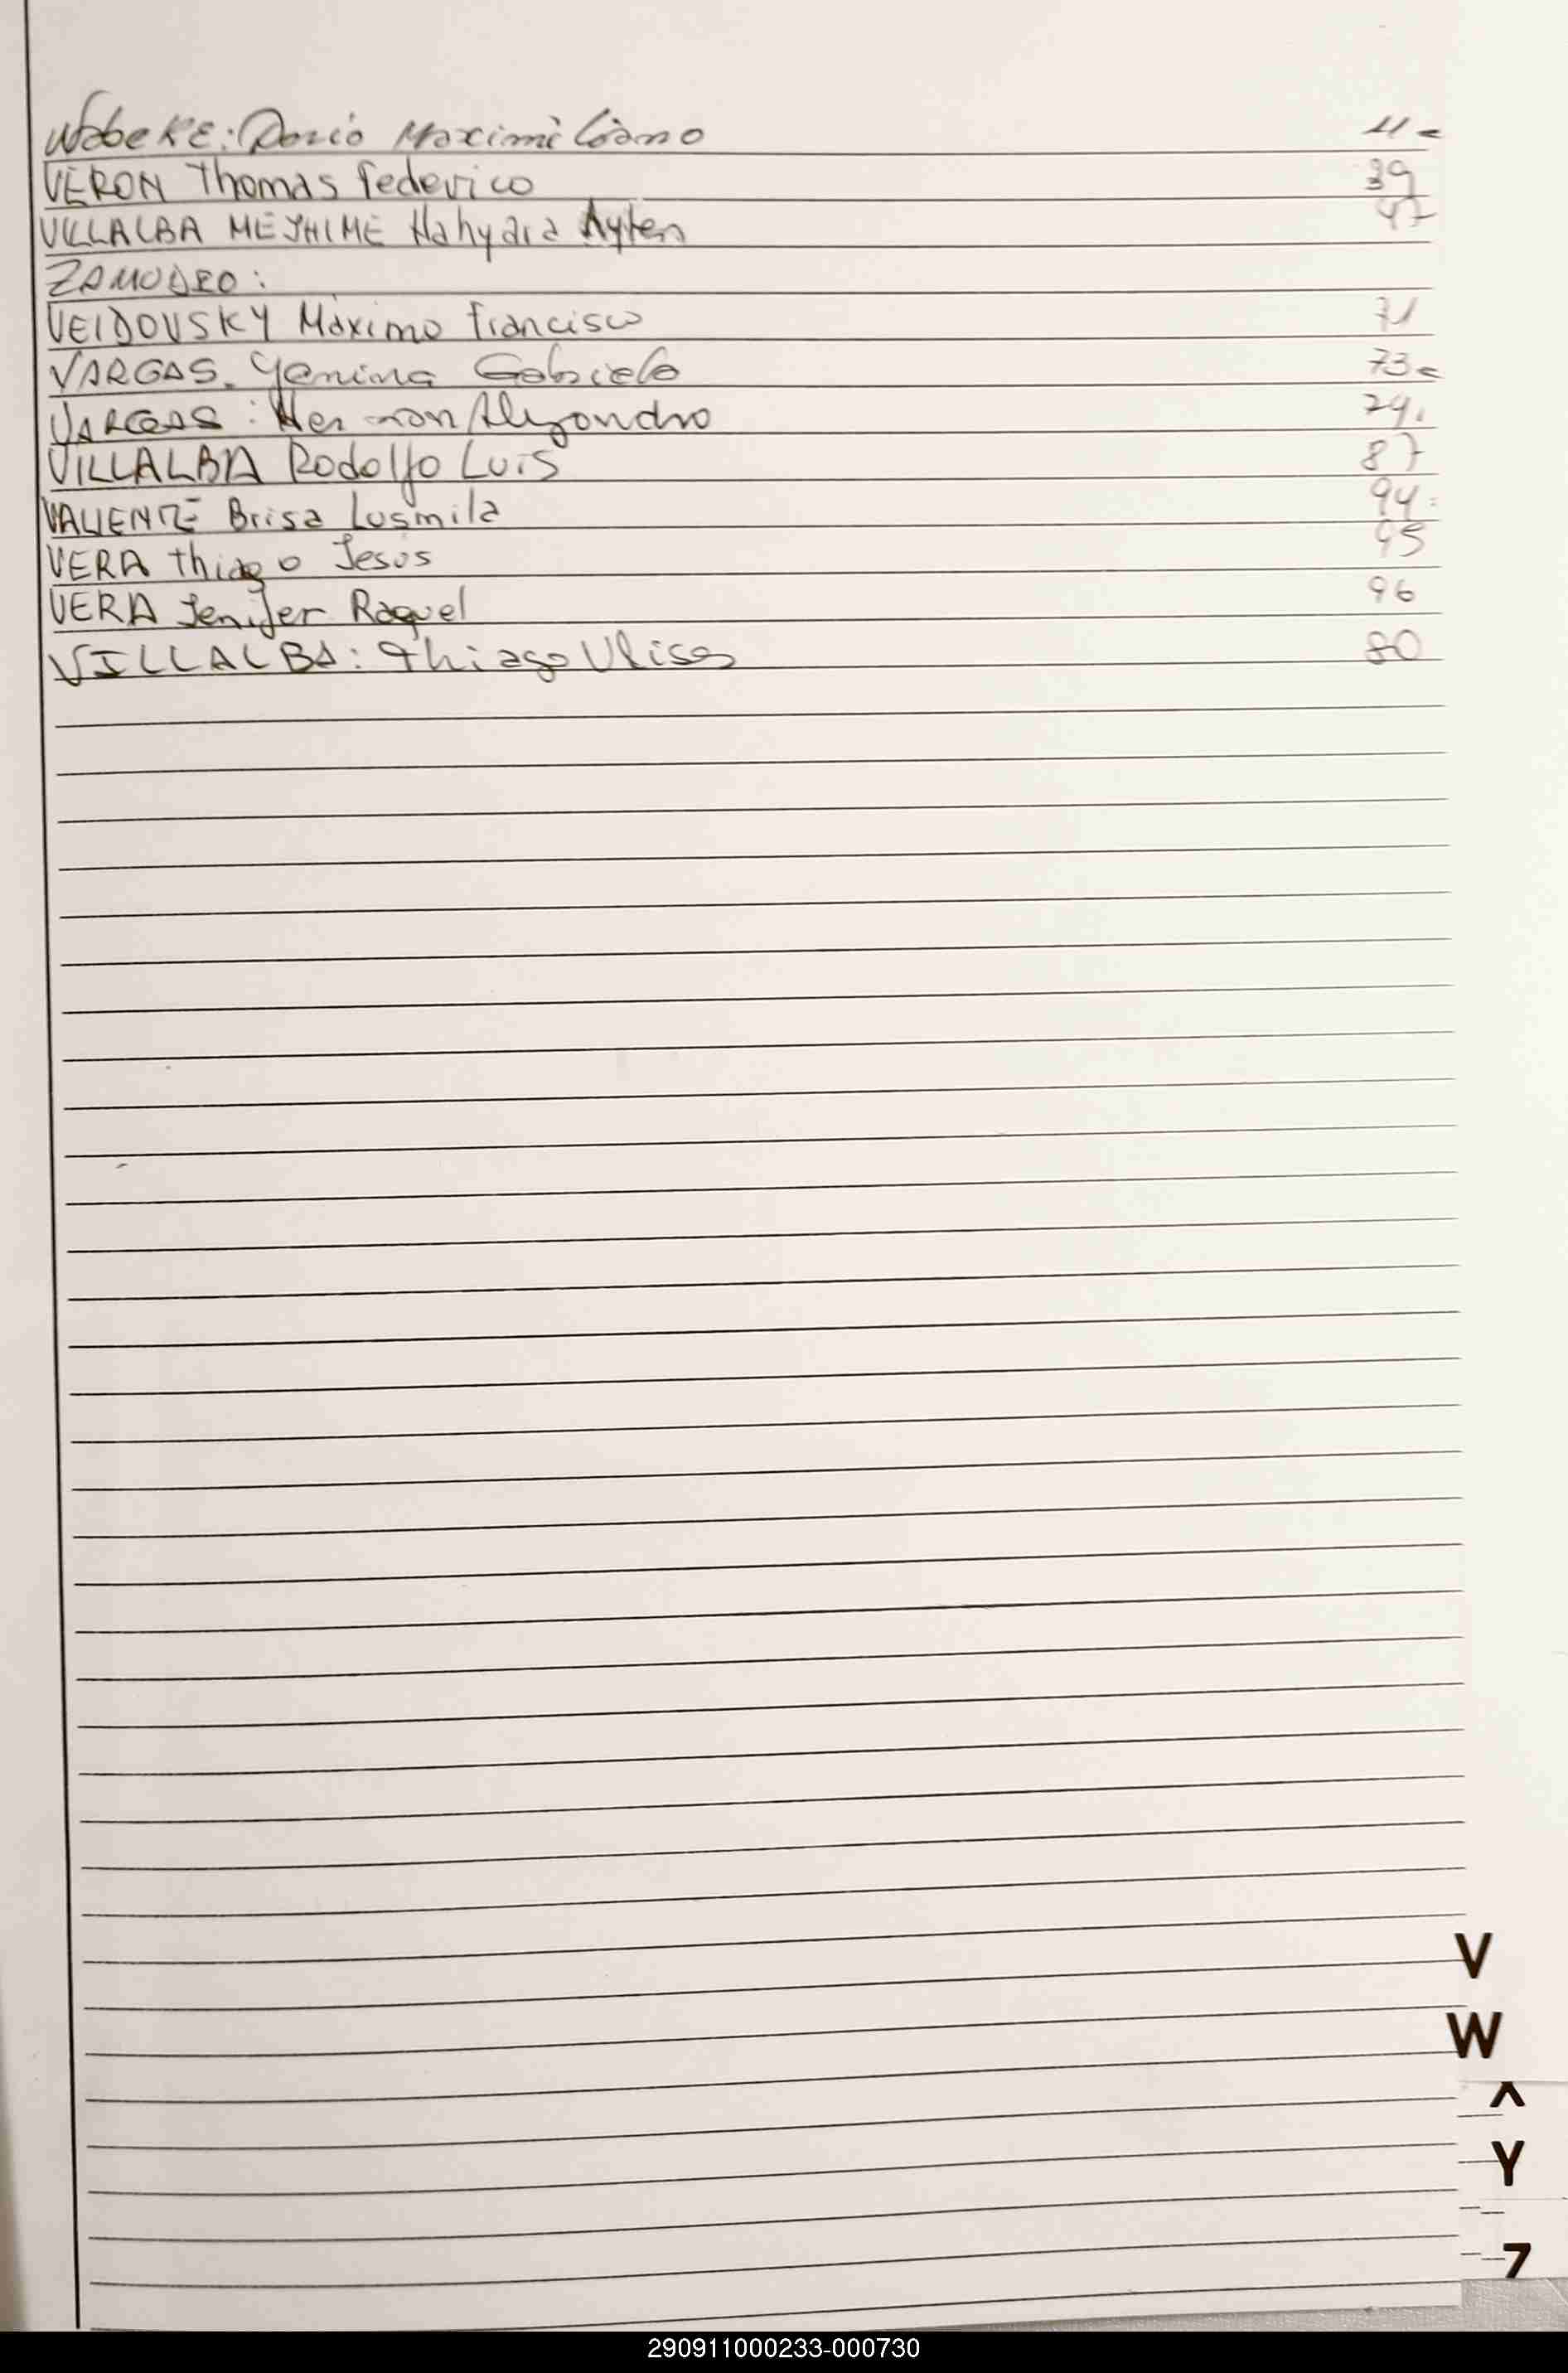 WabeKE: Dario Maximiliano 11
VERON Thomas Federico 39
VILLALBA MEJHIME Nahyara Aylen 47
ZAMUDIO:
VEIDOVSKY Máximo Francisco 71
VARGAS. Yanina Gabriela 73
VARGAS: Hernan Alejandro 74.
VILLALBA Rodolfo Luis 87
VALIENTE Brisa Lusmila 94
VERA Thiago Jesús 95
VERA Jenifer Raquel 96
VILLALBA: Thiago Ulises 80
V
W
X
Y
Z
290911000233-000730